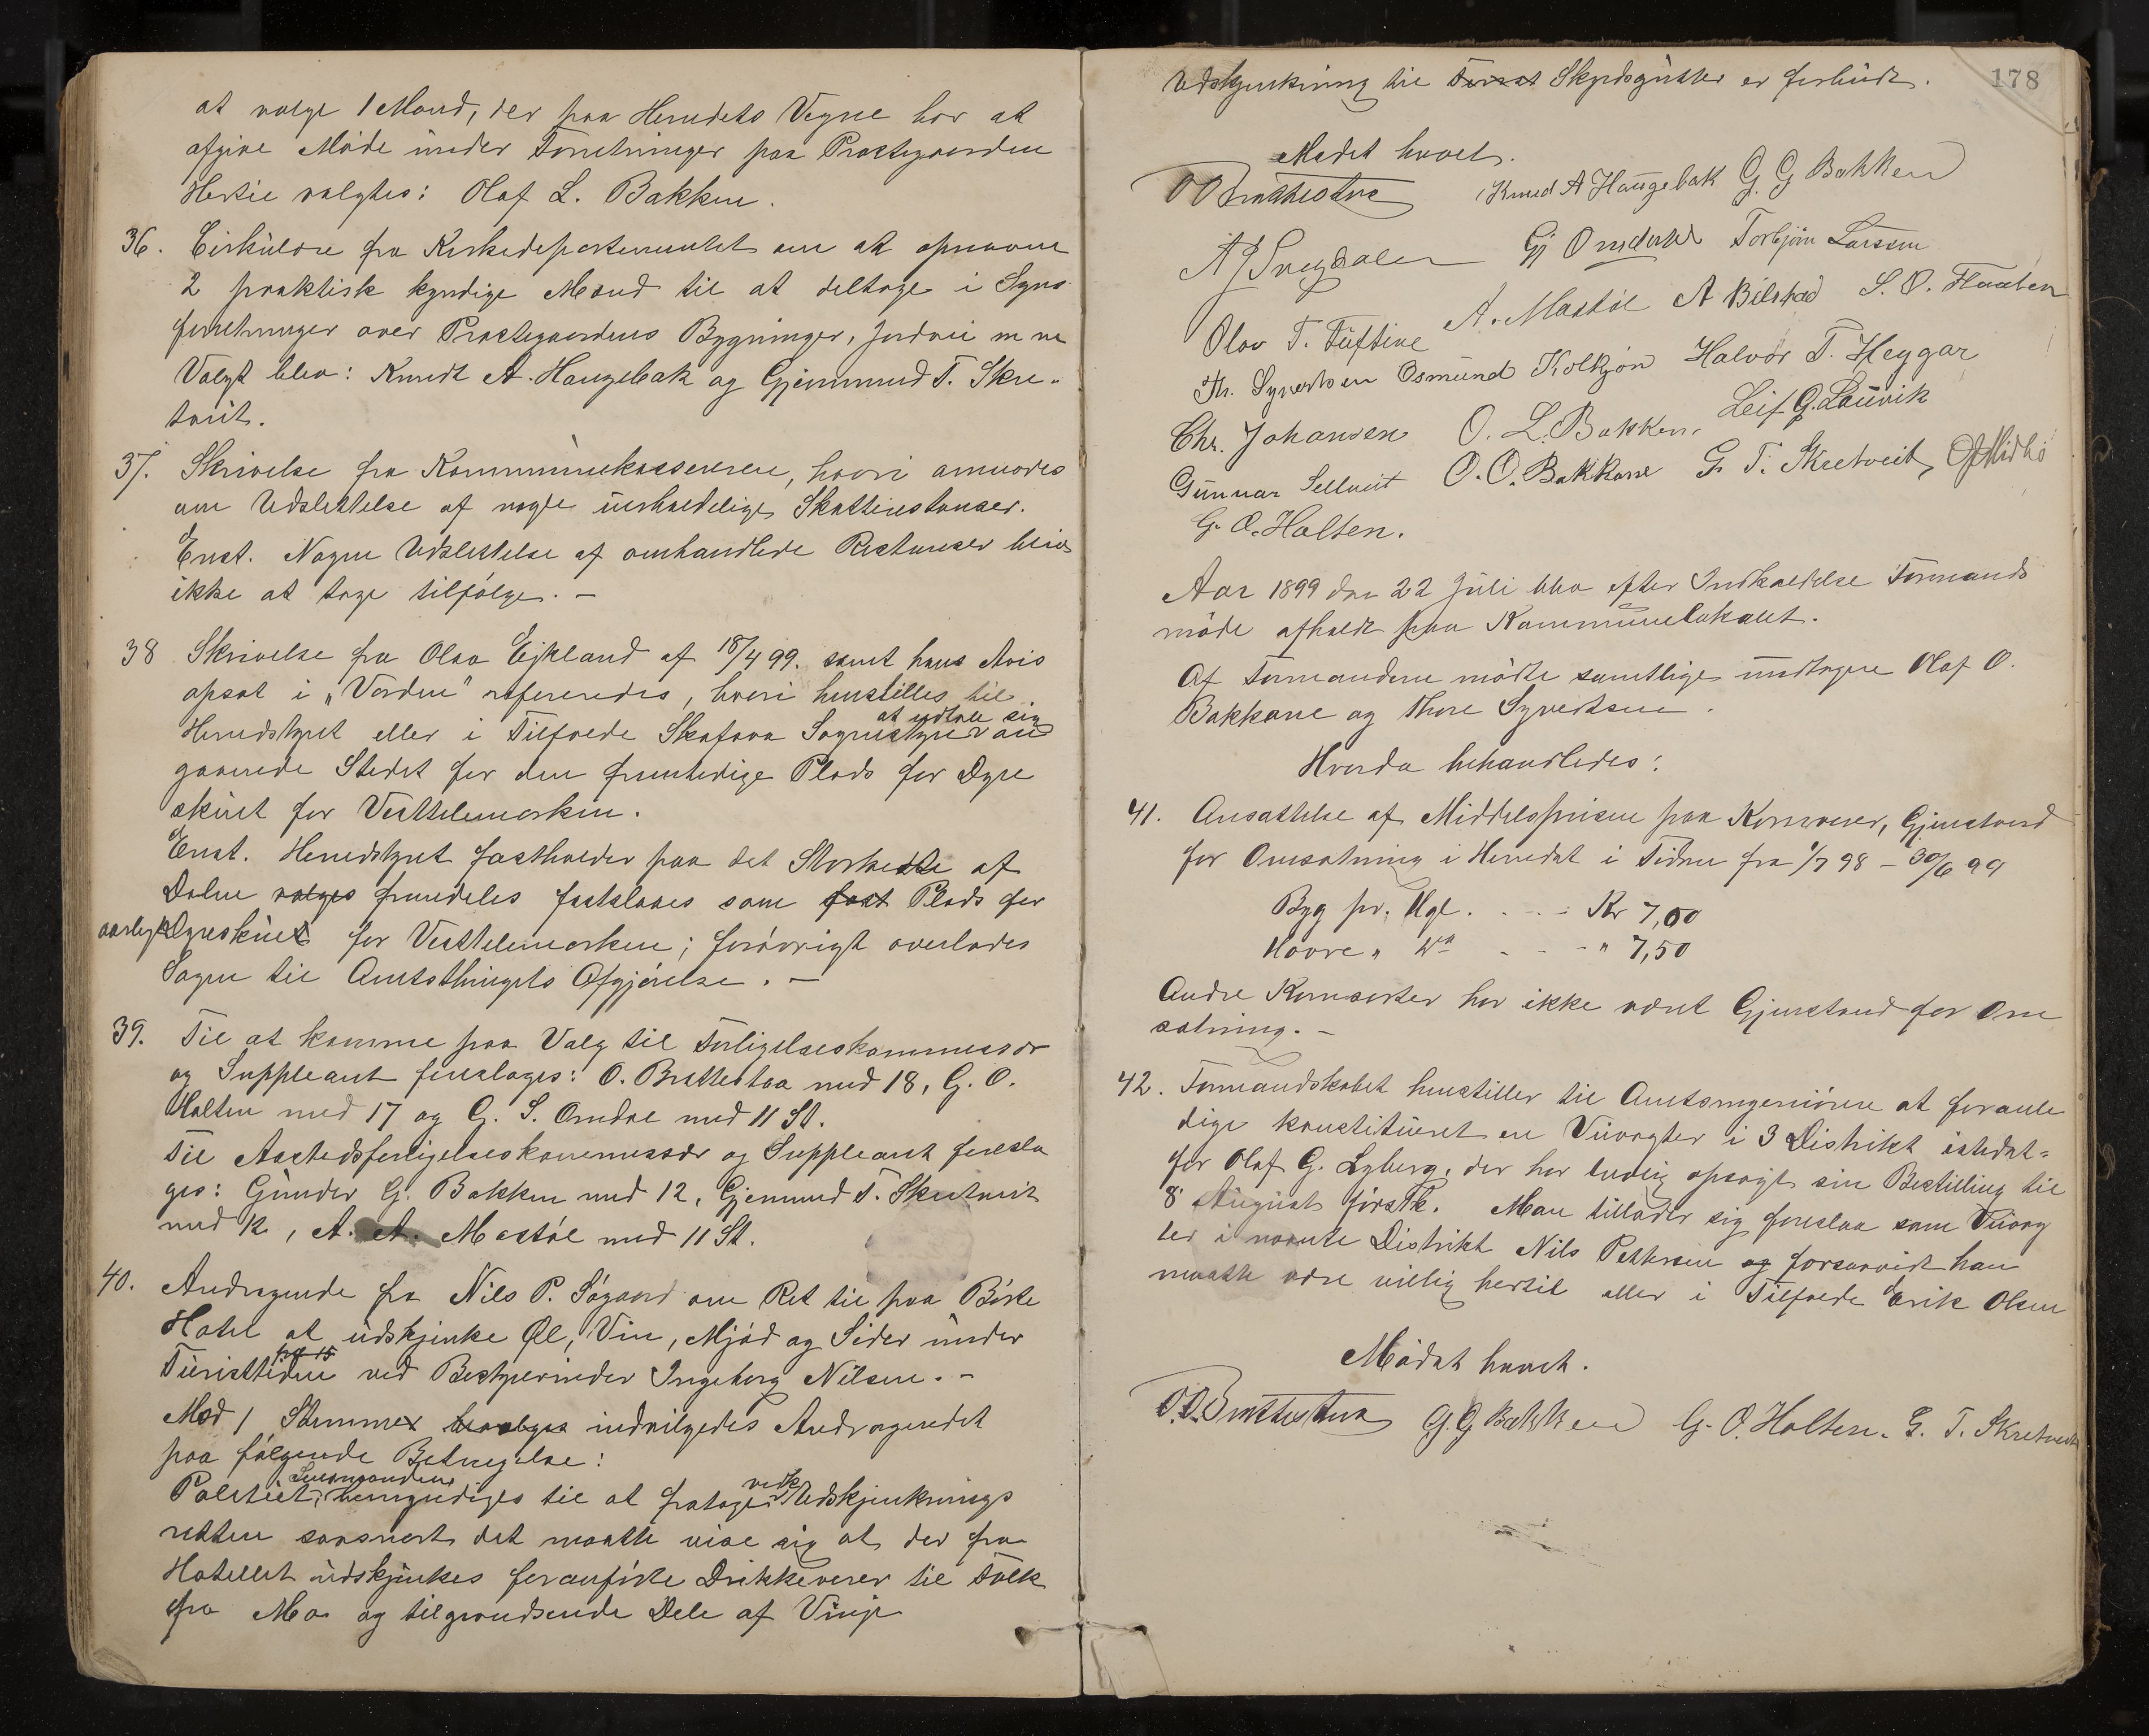 at vælge 1 Mand, der paa Herredets Vegne har at
afgive Møde under Forretninger paa Præstegaarden
Hertil valgtes: Olaf L. Bakken.
36. Cirkulære fra Kirkedepartementet om at opnævne
2 praktisk kyndige Mænd til at deltage i Syns
forretninger over Præstegaardens Bygninger, Jordvei m m
Valgt blev: Knudt A. Haugebak og Gjermund T. Skre-
tveit.
37. Skrivelse fra Kommunekassereren, hvori anmodes
om Udslettelse af nogle uerholdelige Skatterestanser.
Enst. Nogen Udslettelse af omhandlede Restanser blev
ikke at tage tilfølge. —
38 Skrivelse fra Olav Ejkland af 18/4 99. samt hans Avis
opsat i „Varden" refereredes, hvori henstilles til
Herredstyret eller i Tilfælde Skafsaa Sognestyre at udtale sig an
gaaende Stedet for den fremtidige Plads for Dyre
skuet for Vesttelemarken.
Enst. Herredstyret fastholder paa det Sterkeste af
Dalen vælges fremdeles fastslaaes som fast Plads for
aarligt Dyreskuet for Vesttelemarken; forøvrigt overlades
Sagen til Amtsthingets Afgjørelse. —
39. Til at komme paa Valg til Forligelseskommissær
og Suppleant foreslages: O. Brattestaa med 18, G. O.
Holten med 17 og G. S. Omdal med 11 St.
Til Aastedsforligelseskommissær og Suppleant foresla
ges: Gunder G. Bakken med 12, Gjermund T. Skretveit
med 12, A. A. Mostøl med 11 St.
40. Andragende fra Nils P. Søgaard om Ret til paa Børte
Hotel at udskjenke Øl, Vin, Mjød og Sider under
Turisttiden ved Bestyrerinden Ingeborg Nilsen. —
Mod 1 Stemmer indvilgedes Andragendet
paa følgende Betingelse:
Politiet, Lensmanden bemyndiges til at fratage vedk. Udskjenknings
retten saasnart det maatte vise sig at der fra
Hotellet udskjenkes foranførte Drikkevarer til Folk
fra Mo og tilgrændsende Dele af Vinje
178
Udskjenkning til Forsat Skydsgutter er forbudt.
Mødet hævet.
O O Brattestaa Knud A Haugebak G. G Bakken
Gj Omdahl Torbjørn Larssen
Olav T. Tuftine A. Mostøl A Bilstad S. O. Flaaten
Th. Syvertsen Osmund Kolkjøn Halvor T. Heggar
Chr. Johansen O. L. Bakken. Leif G. Lauvik
Gunnar Selltveit O. O. Bakkane G. T. Skretveit,
G. O. Holten.
Aar 1899 den 22 Juli blev efter Indkaldelse Formands
møde afholdt paa Kommunelokalet.
Af Formændene mødte samtlige undtagen Olaf O.
Bakkane og Thore Syvertsen.
Hvorda behandledes:
41. Ansættelse af Middelsprisen paa Kornvarer, Gjenstand
for Omsætning i Herredet i Tiden fra 1/7 98 – 30/6 99
Byg pr. Hgl. . . . : Kr 7,00
Havre „ do . - - „ 7,50
Andre Kornsorter har ikke været Gjenstand for Om
sætning. —
42. Formandskabet henstiller til Amtsingeniøren at foranle
dige konstitueret en Veivogter i 3 Distrikt istedet-
for Olaf G. Lyberg, der har lovlig opsagt sin Bestilling til
8 August førstk. Man tillader sig foreslaa som Veivog
ter i nævnte Distrikt Nils Pettersen og forsaavidt han
maatte være villig hertil eller i Tilfælde Erik Olsen
Mødet hævet.
O. O. Brattestaa G. G Bakken G. O. Holten. G. T. Skretveit